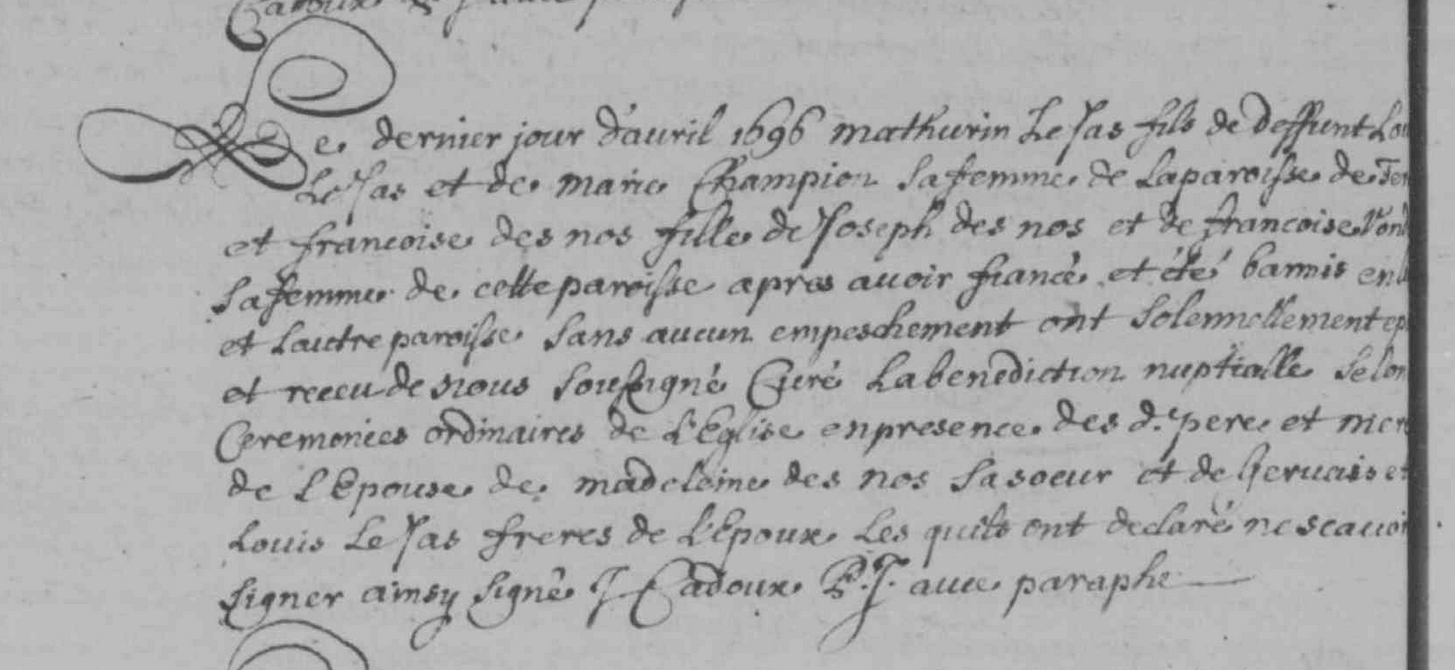 Cadoux
Le dernier jour d'auril 1696 mathurin Le Jas fils de deffunt Lou
Le Jas et de marie Champion sa femme de La paroisse de
et francoise des nos fille de Joseph des nos et de francoise
sa femme de cette paroisse apres auoir fiancé et été bannis en
et L'autre paroisse sans aucun empeschement ont solennellement ep
et receu de nous soussigné Curé La benediction nuptialle selon
Ceremonies ordinaires de L'Eglise en presence des d. pere et mere
de L'Epouse de madeleine des nos sa soeur et de Geruais et
Louis Le Jas freres de L'Epoux Les quils ont declaré ne scauoir
signer ainsy signé J Cadoux P. J. auec paraphe